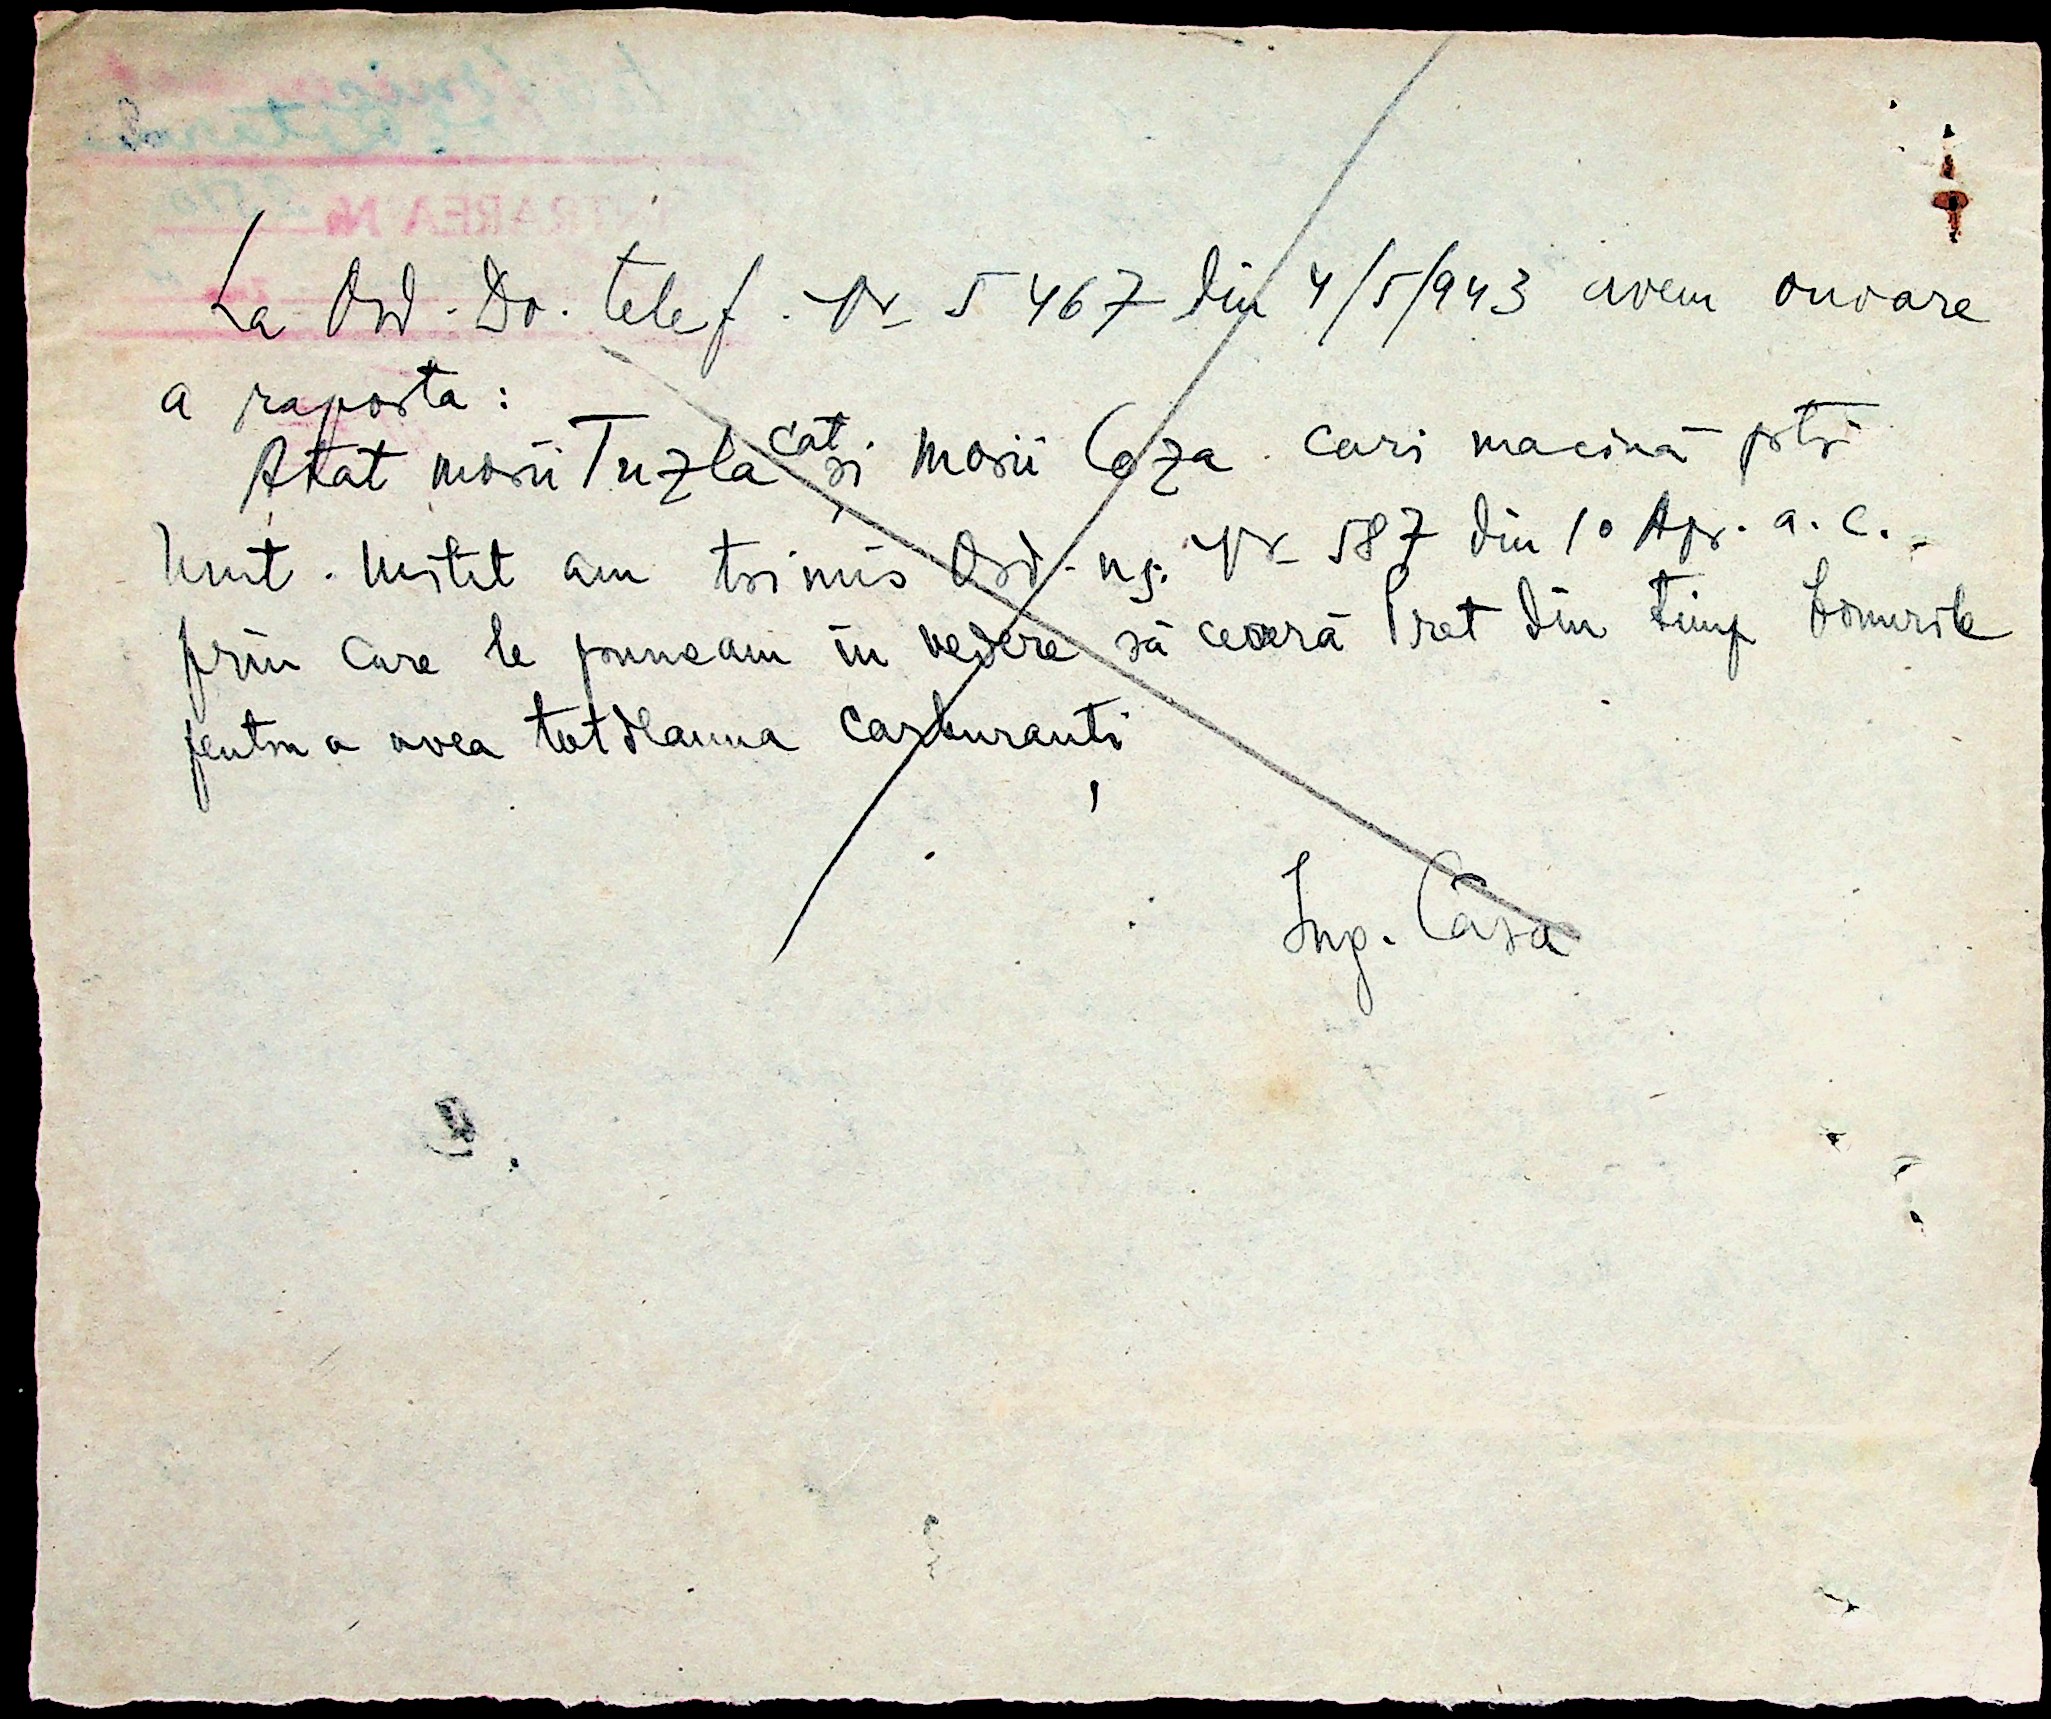 La Ord. Dv. telef. Nr 5467 din 4/5/943 avem onoare
a raporta:
Atat morii Tuzla cat și morii Caza cari macină ptr
Unit. Milit am trimis Ord. ns. Nr 587 din 10 Apr. a.c.
prin care le puneam în vedere să ceară Pret din timp bonurile
pentru a avea totdeauna carburanți
Ing. Casa
INTRAREA No